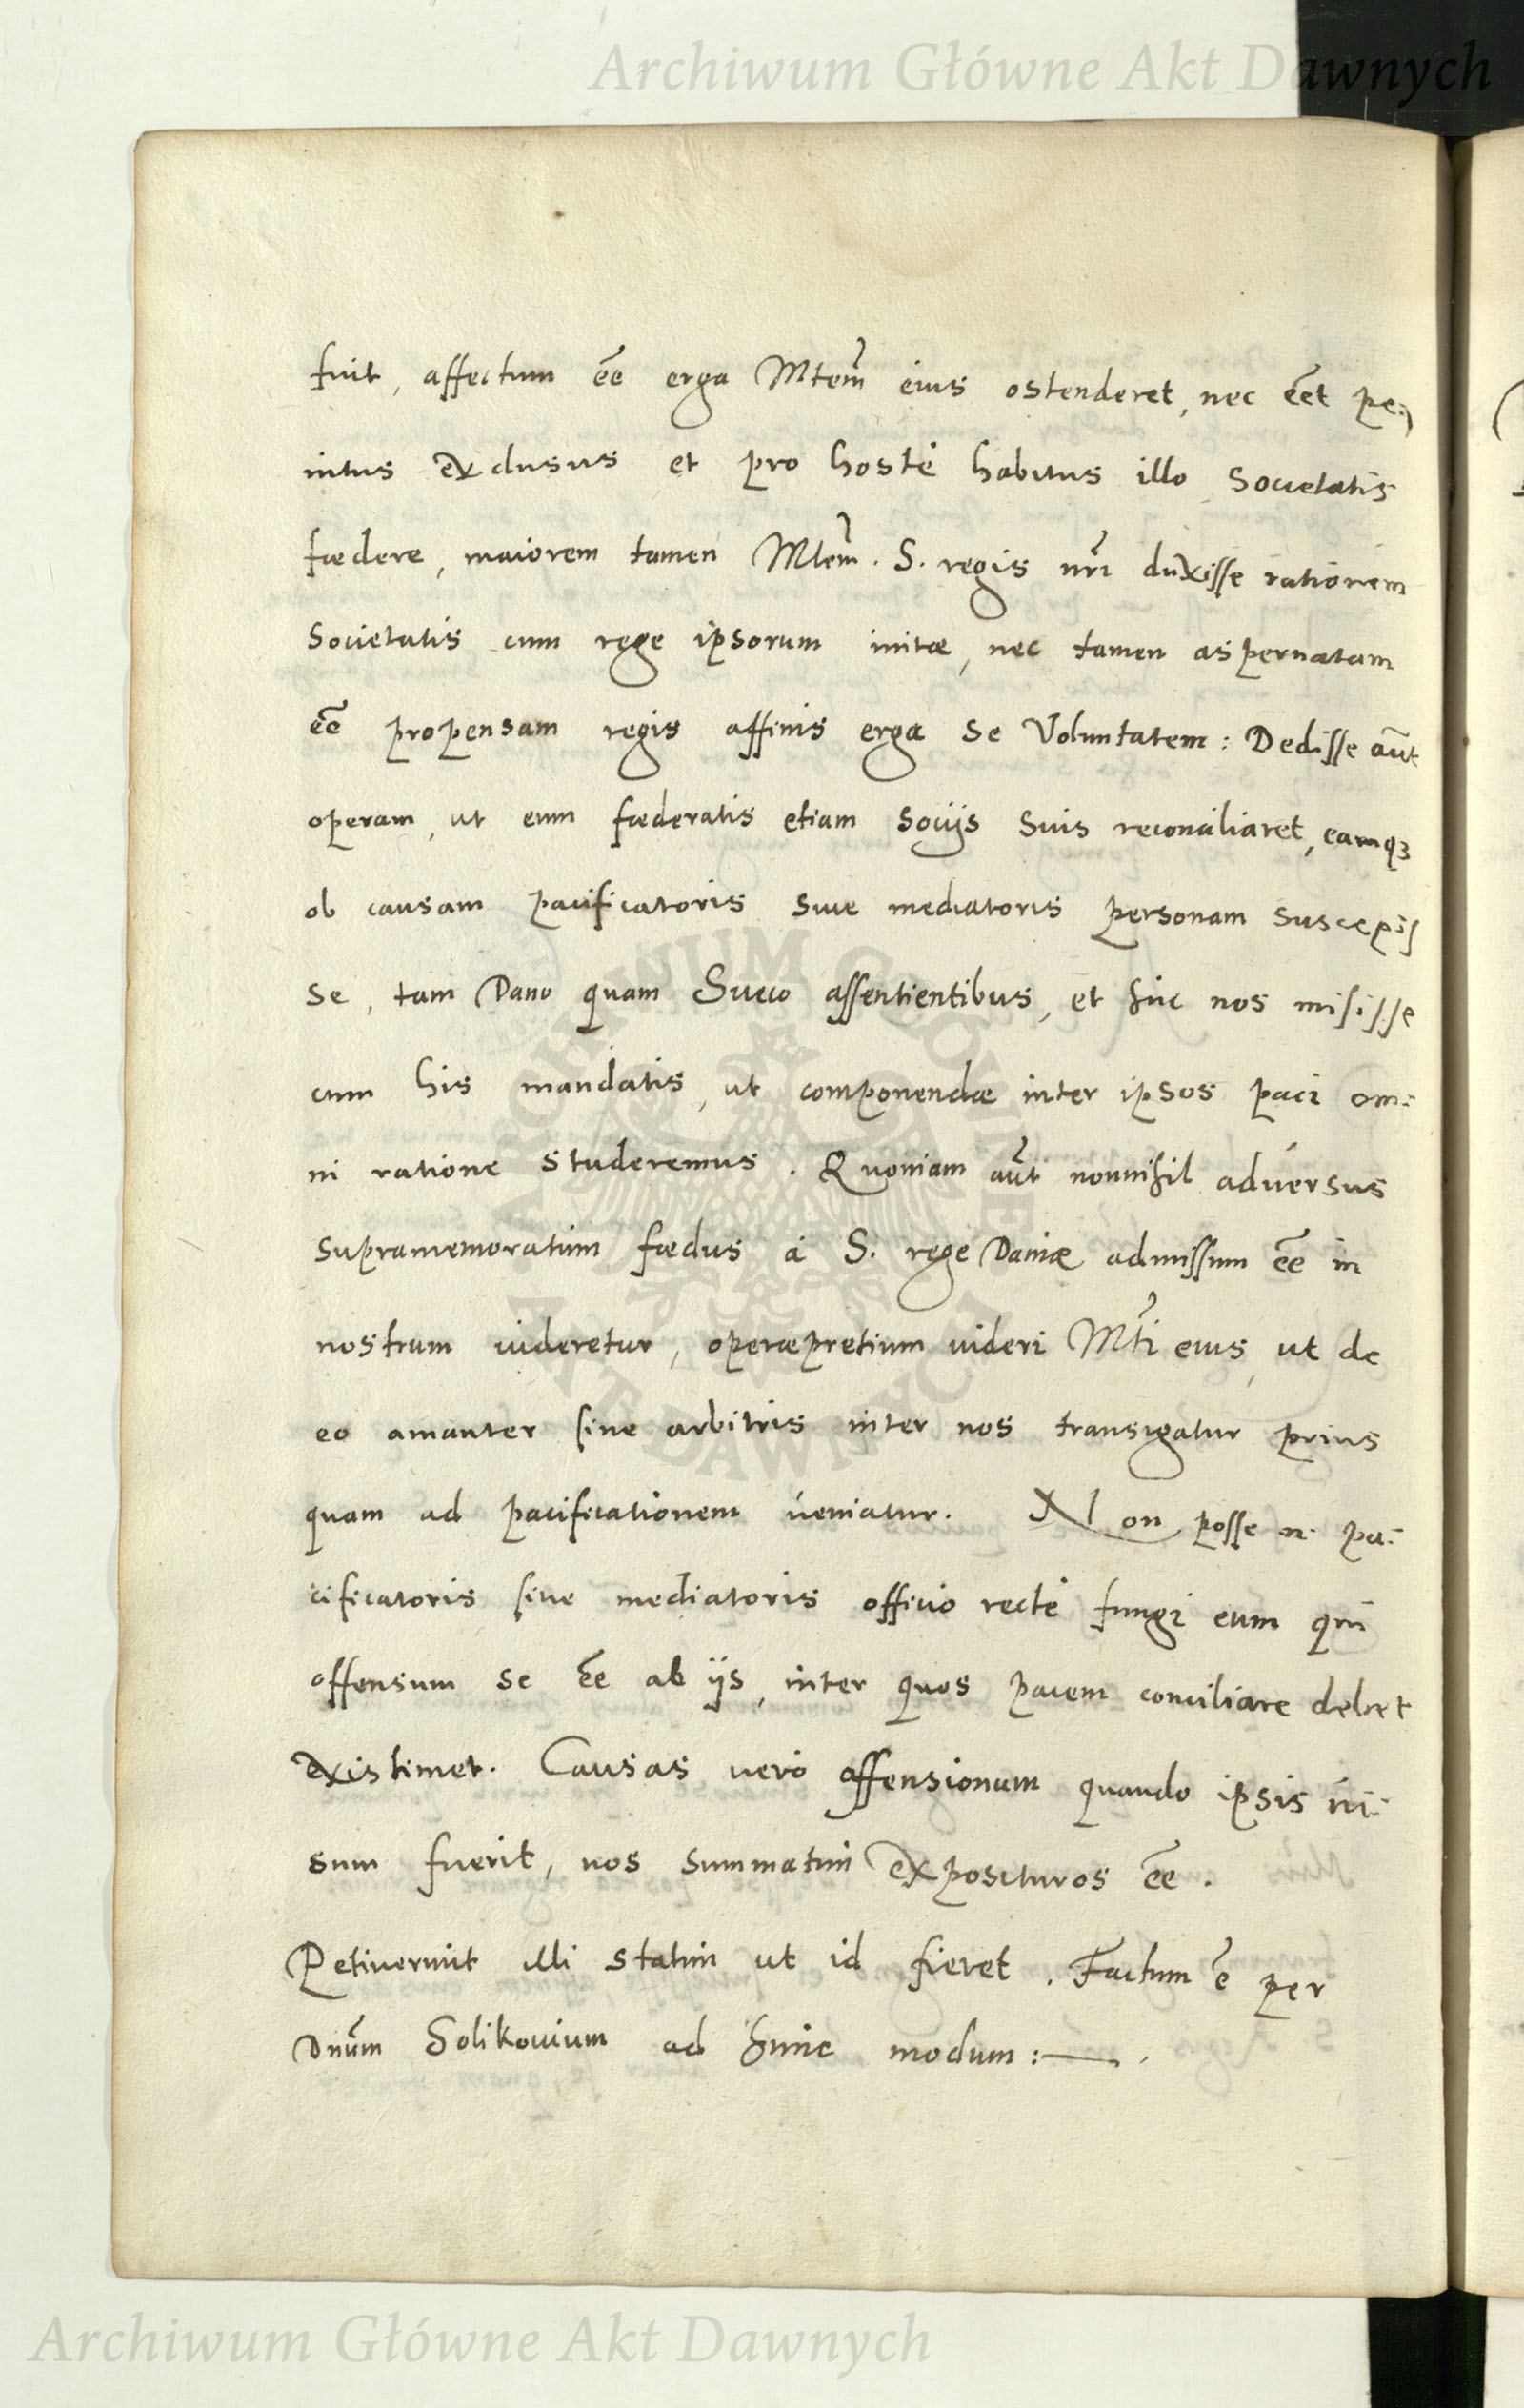 Archiwum Główne Akt Dawnych
fuit, affectum eē erga Mtem̄ eius ostenderet, nec eēt pe-
nitus exclusus et pro hoste habitus illo societatis
fœdere, maiorem tamen Mtem̄. S. regis nr̄i duxisse rationem
Societatis cum rege ipsorum initæ, nec tamen aspernatam
eē propensam regis affinis erga se Voluntatem: Dedisse aūt
operam, ut eum fœderatis etiam socijs suis reconciliaret, eamq3
ob causam pacificatoris siue mediatoris personam suscepis
se, tam Dano quam Sueco assentientibus, et huc nos misisse
cum his mandatis, ut componendæ inter ipsos paci om:
ni ratione studeremus. Quoniam aūt nonnihil aduersus
supramemoratum fœdus à S. rege Daniæ admissum eē in
nostrum uideretur, operæpretium uideri Mt̄i eius, ut de
eo amanter sine arbitris inter nos transigatur prius
quam ad pacificationem ueniatur. Non posse n. pa:
cificatoris siue mediatoris officio recte fungi eum qui
offensum se eē ab ijs, inter quos pacem conciliare debet
existimet. Causas vero offensionum quando ipsis ui:
sum fuerit, nos summatim exposituros eē.
Petiuerunt illi statim ut id fieret. Factum ē per
Dnūm Solikouium ad hunc modum:
ARCHIWUM GŁÓWNE
AKT DAWNYCH
Archiwum Główne Akt Dawnych